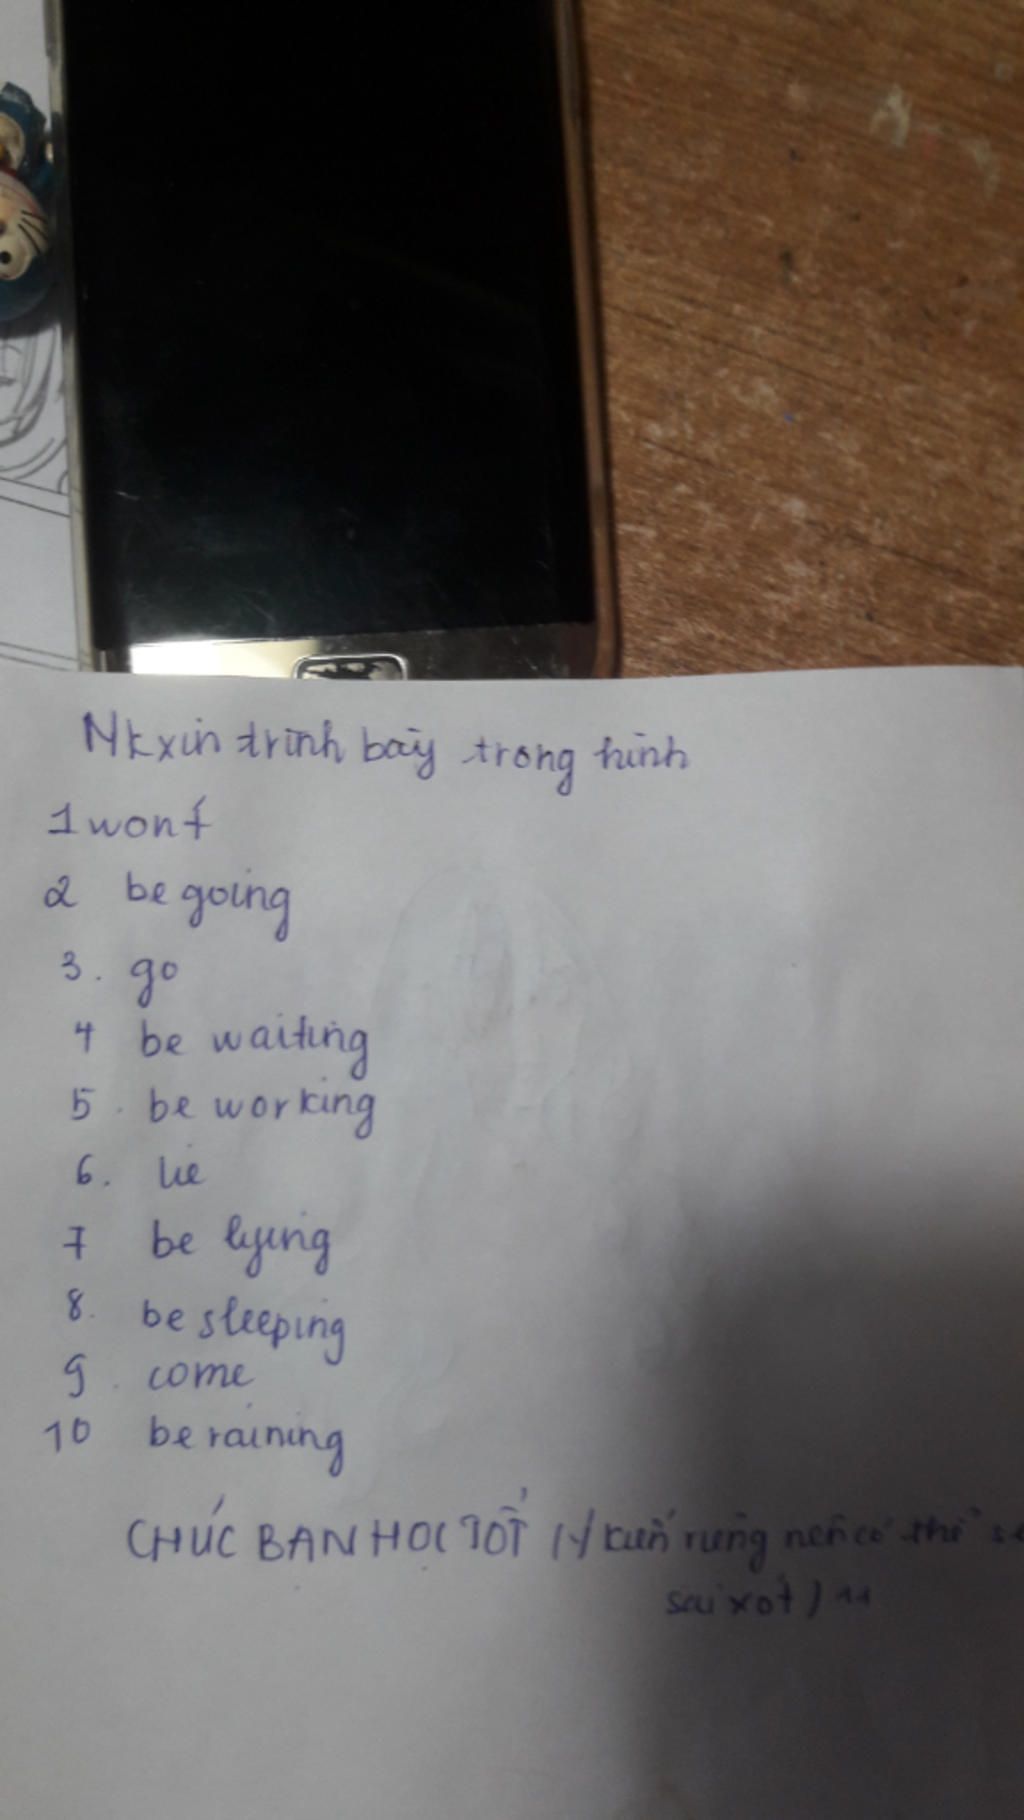 Mk xin trình bày trong hình
1 wont
2 be going
3. go
4 be waiting
5. be working
6. lie
7 be lying
8. be sleeping
9. come
10 be raining
CHÚC BAN HOC TỐT (Ý kiến riêng nên có thể
sai xót) ^^